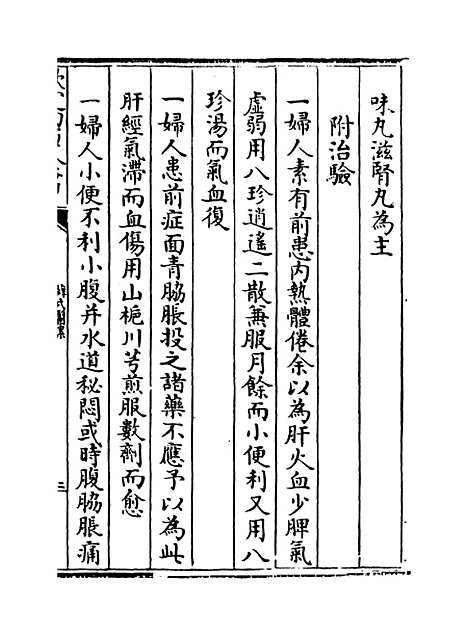 味丸滋腎丸為主
附治驗
一婦人素有前患内熱體倦余以為肝火血少脾氣
虚弱用八珍逍遙二散兼服月餘而小便利又用八
珍湯而氣血復
一婦人患前症面青脇脹投之諸藥不應予以為此
肝經氣滯而血傷用山梔川芎煎服數劑而愈
一婦人小便不利小腹并水道秘悶或時腹脇脹痛
薛氏醫案
三